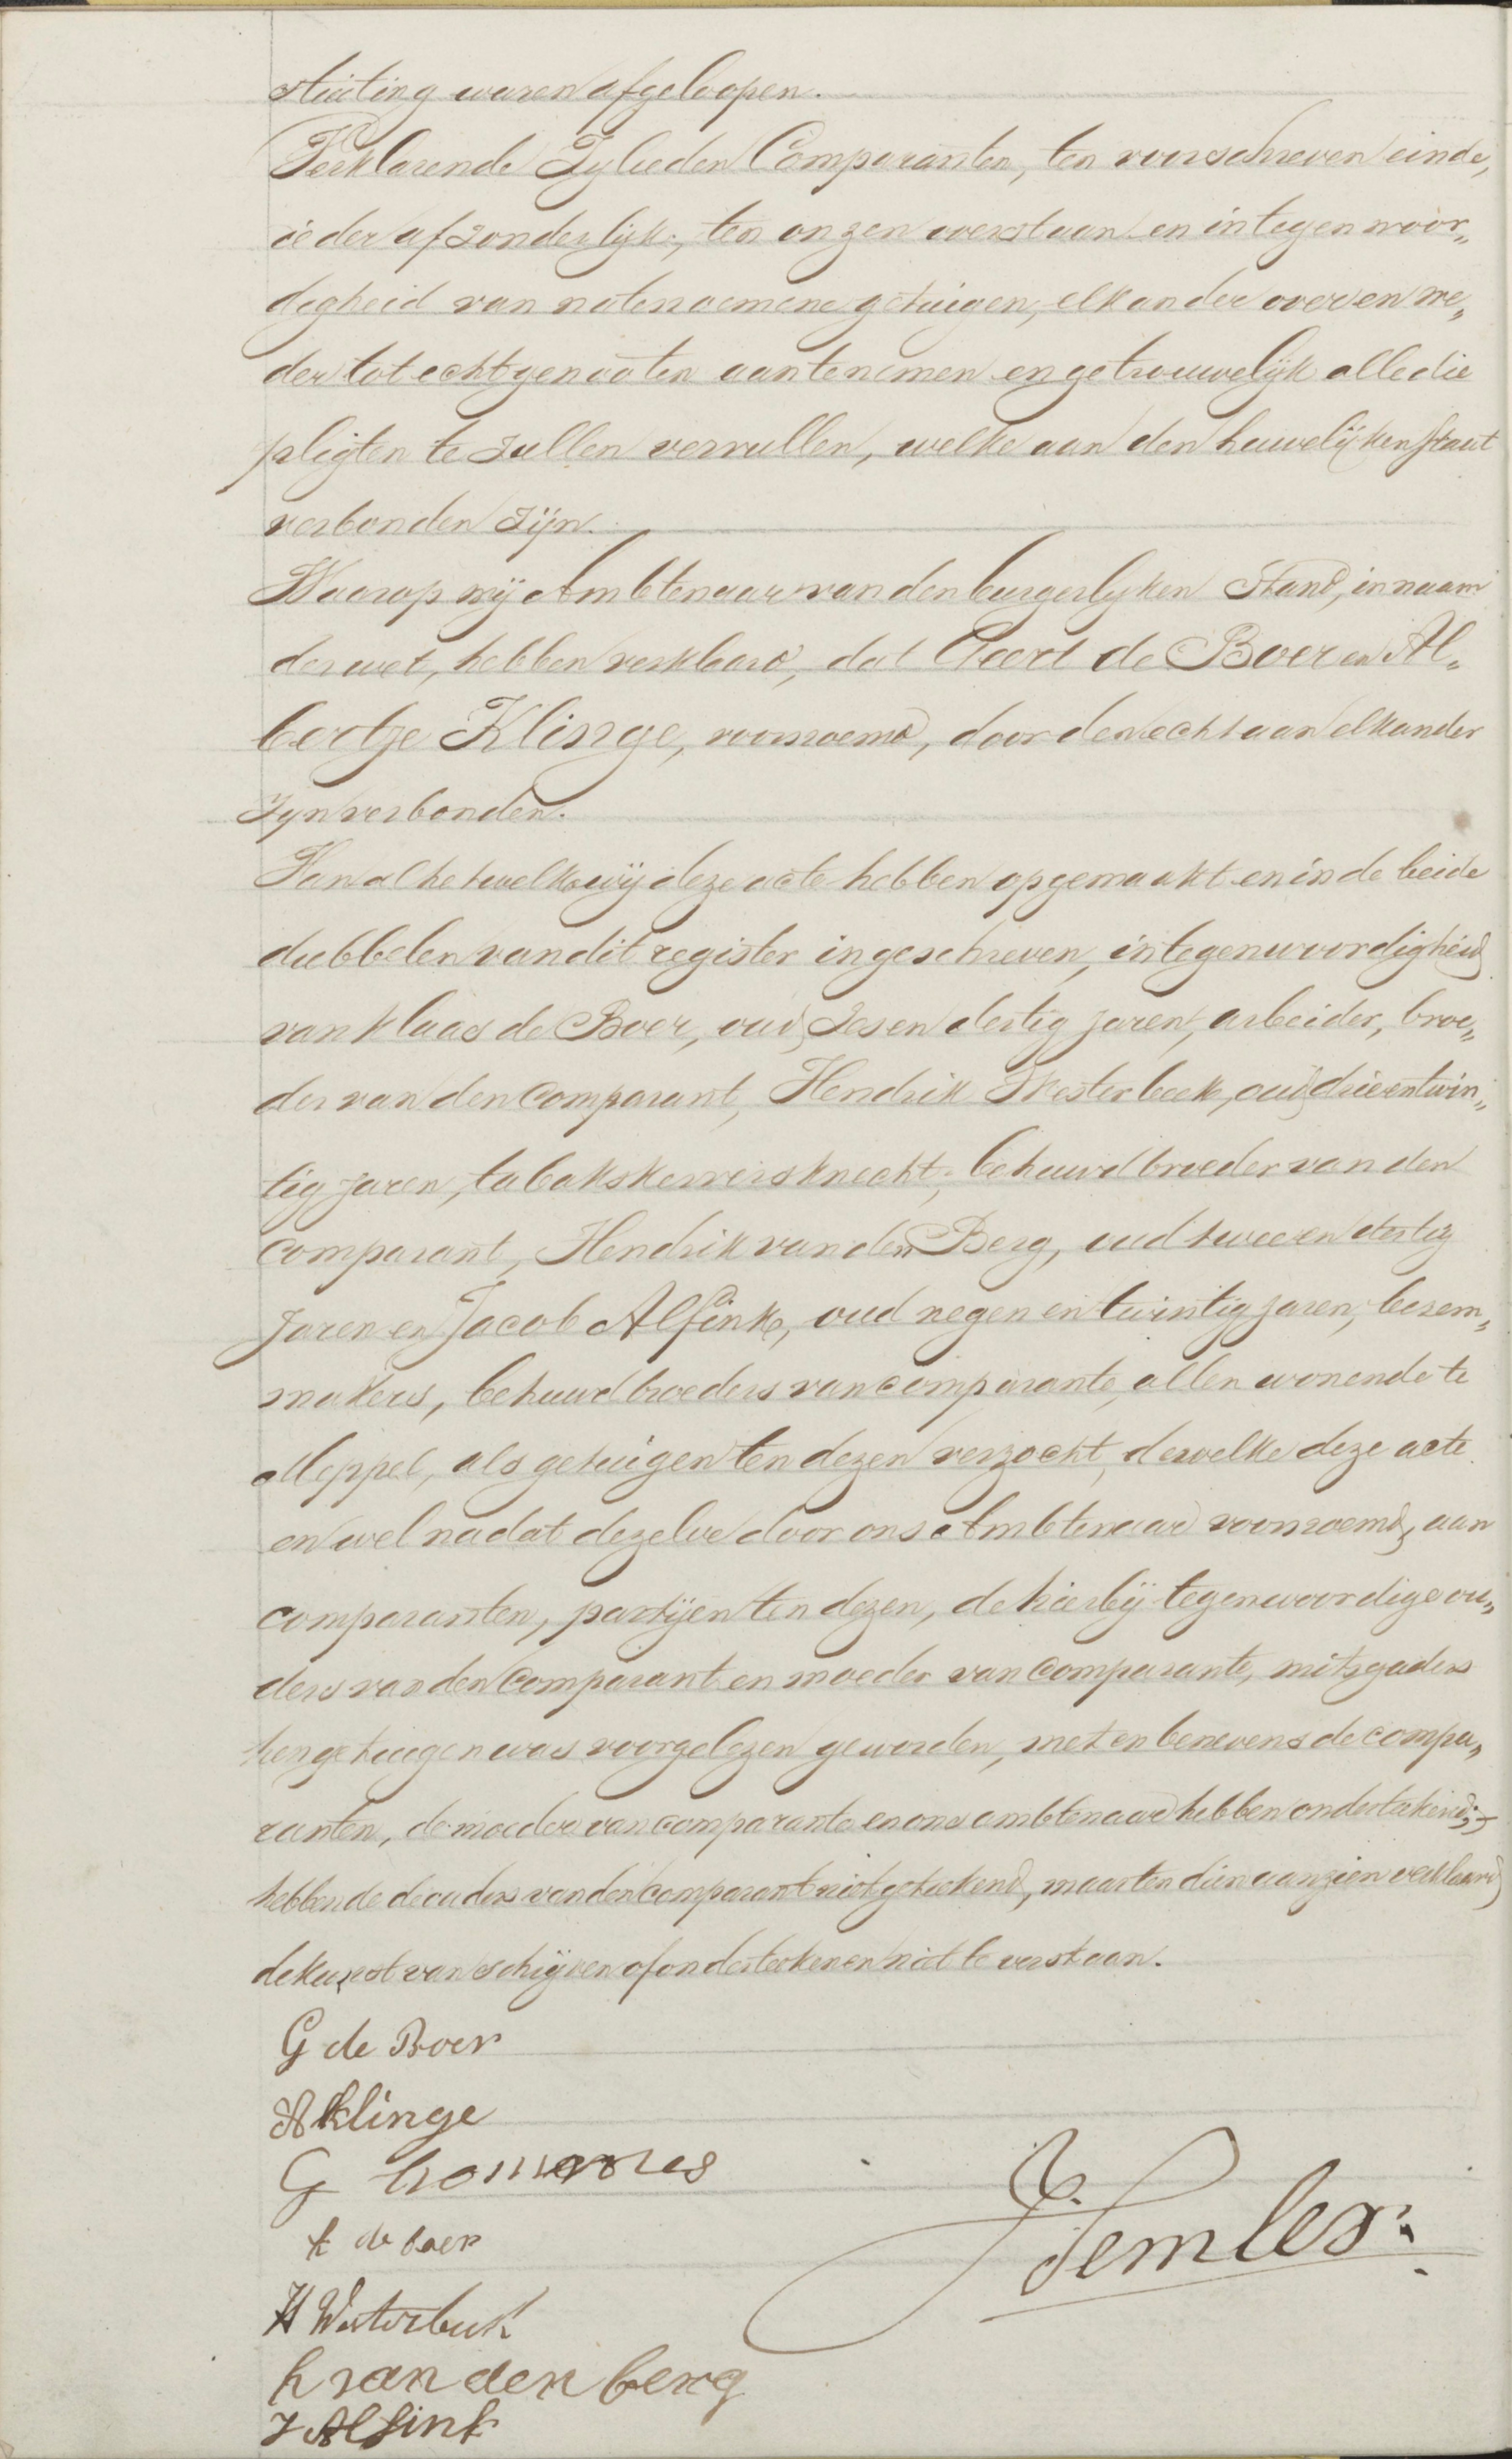 stuiting waren afgeloopen.
Verklarende Zylieden Comparanten, ten voorschreven einde,
ieder afzonderlijk, ten onzen overstaan en in tegenwoor„
digheid van natenoemene getuigen, elkander over en we„
der tot echtgenooten aantenemen en getrouwelijk alle die
pligten te zullen vervullen, welke aan den huwelijken staat
verbonden zijn.
Waarop wij Ambtenaar van den burgerlyken Stand, in naam
der wet, hebben verklaard, dat Geert de Boer en Al„
bertje Klinge, voornoemd, door den echt aan elkander
zyn verbonden.
Van al hetwelk wij deze acte hebben opgemaakt en in de beide
dubbelen van dit register ingeschreven, in tegenwoordigheid
van Klaas de Boer, oud zes en dertig jaren, arbeider, broe„
der van den comparant, Hendrik Westerbeek, oud drieentwin„
tig jaren, tabakskerversknecht, behuwdbroeder van den
comparant, Hendrik van den Berg, oud twee en dertig
jaren en Jacob Alfink, oud negen en twintig jaren, bezem„
makers, behuwdbroeders van comparante, allen wonende te
Meppel, als getuigen ten dezen verzocht, dewelke deze acte
en wel nadat dezelve door ons Ambtenaar voornoemd, aan
comparanten, partijen ten dezen, de hierbij tegenwoordige ou„
ders van den Comparant en moeder van Comparante, mitsgaders
hen getuigen was voorgelezen geworden, met en benevens de compa„
ranten, de moeder van comparante en ons ambtenaar hebben onderteekend;
hebbende de ouders van den comparant niet geteekend, maar ten dien aanzien verklaard
de kunst van schrijven of onderteekenen niet te verstaan.
G de Boer
A klinge
G
k de boer
H Westerbeek
h van den berg
J Alfink
Semler